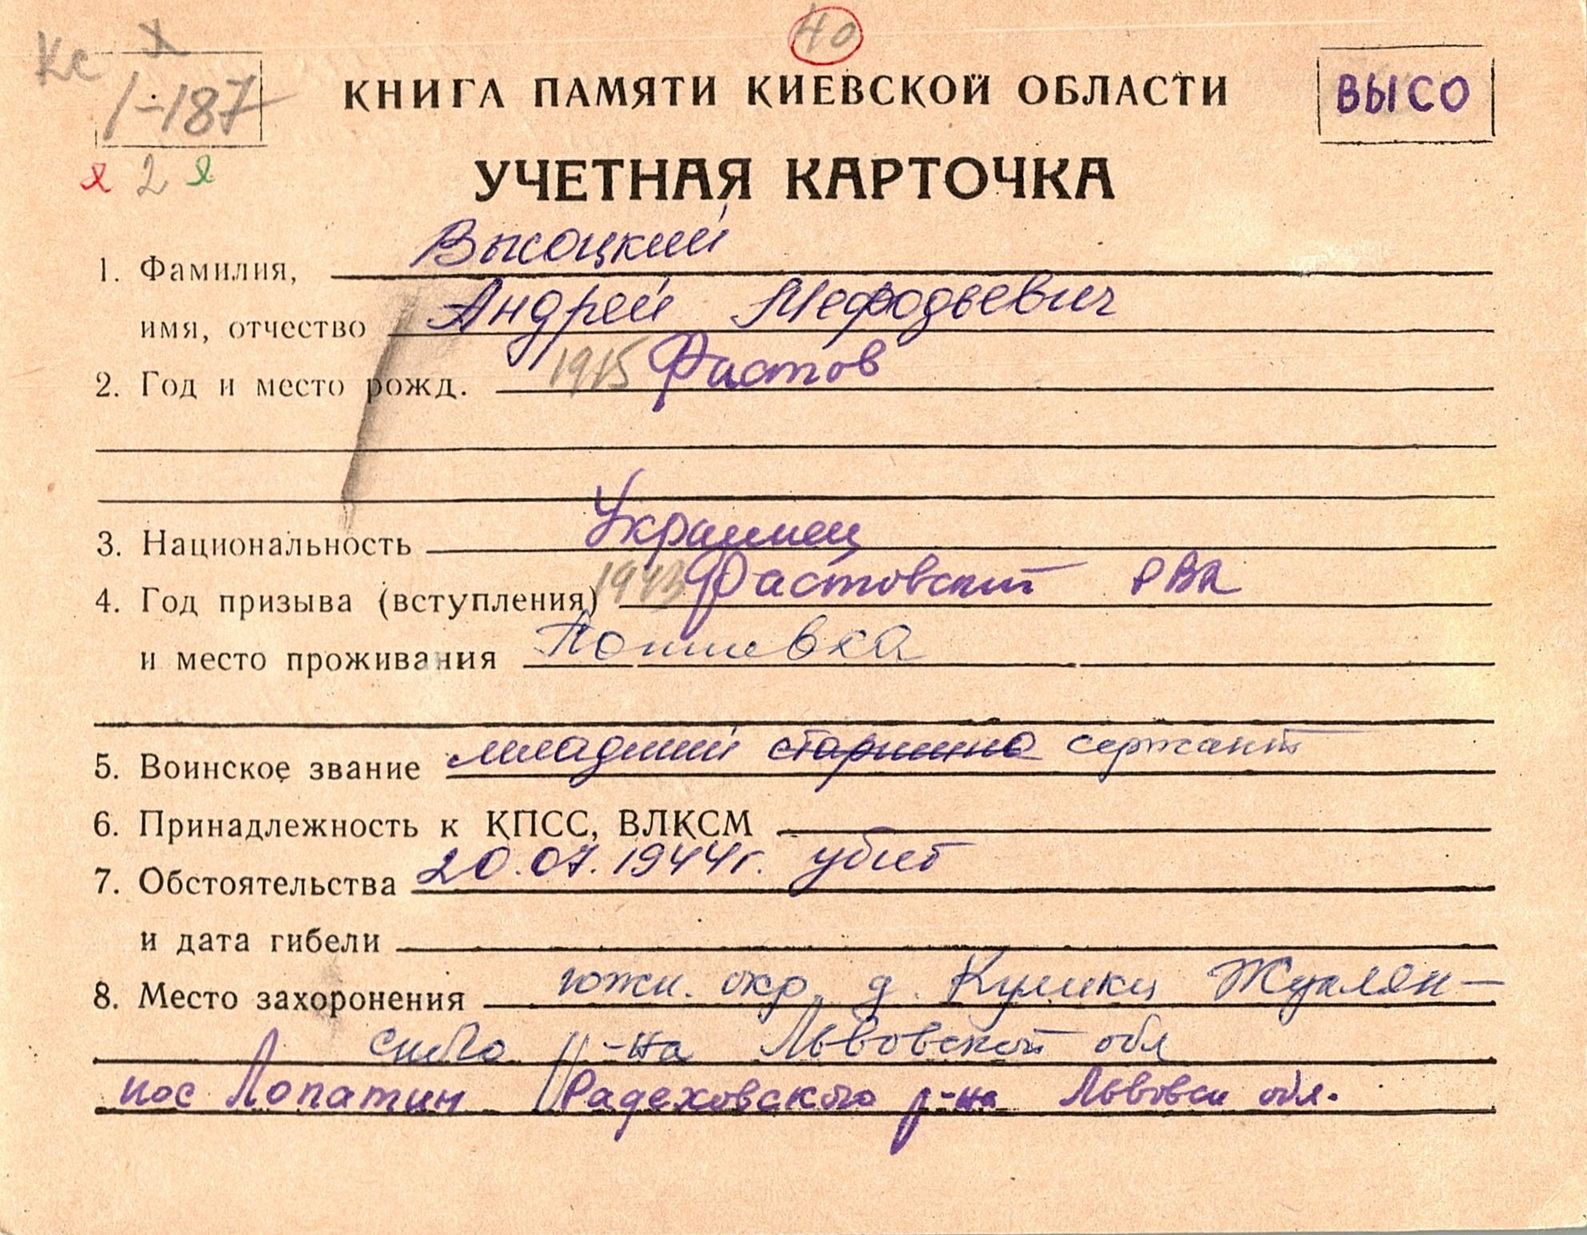 Кс
1-187
2
40
ВЫСО
КНИГА ПАМЯТИ КИЕВСКОЙ ОБЛАСТИ
УЧЕТНАЯ КАРТОЧКА
1. Фамилия, Высоцкий
имя, отчество Андрей Мефодьевич
2. Год и место рожд. 1915 Фастов
3. Национальность Украинец
4. Год призыва (вступления) 1943 Фастовский РВК
и место проживания
5. Воинское звание младший старшина сержант
6. Принадлежность к КПСС, ВЛКСМ
7. Обстоятельства 20.07.1944г. убит
и дата гибели
8. Место захоронения южн. окр. д. Кулики
р-на Львовской обл
пос Лопатин Радеховского р-на Львовск обл.